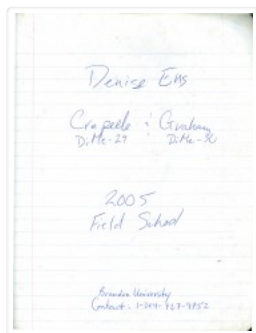 Denise Ens
Crepeele : Graham
DiMe-29 DiMe-30
2005
Field School
Brandon University
Contact: 1-204-727-9852